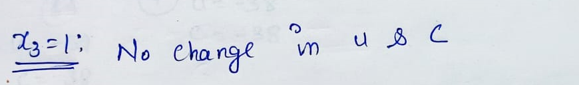 x₃=1: No change in u & C